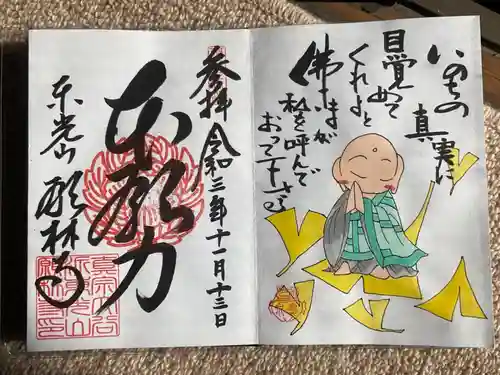 いのちの
真実に
目覚めて
くれよと
佛さまが
私を呼んで
おって下さる
参拝 令和三年十一月十三日
本願力
東光山 願林寺